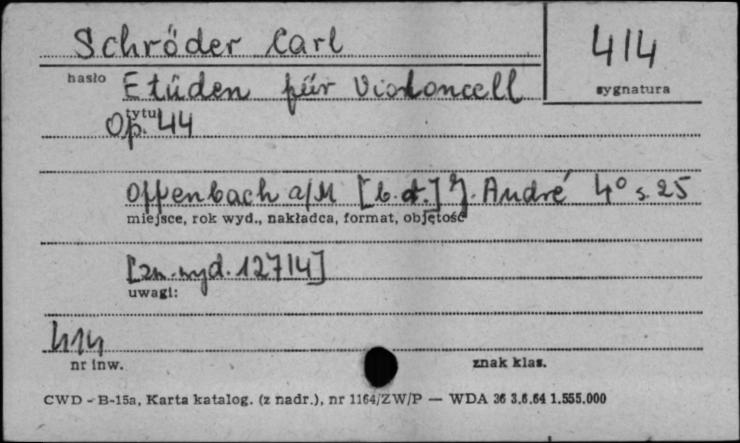 Schröder Carl
414
hasło
Etüden für Violoncell
sygnatura
tytuł
Op. 44
Offenbach a/M [b.d.] J. André 4° s. 25
miejsce, rok wyd., nakładca, format, objętość
[zn. wyd. 12714]
uwagi:
414
nr inw.
znak klas.
CWD - B-15a, Karta katalog. (z nadr.), nr 1164/ZW/P — WDA 36 3.6.64 1.555.000